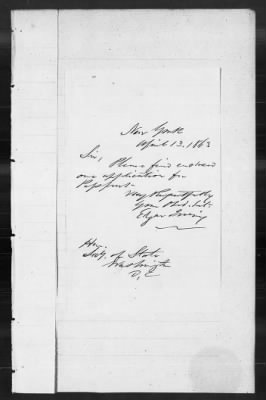 New York
April 13. 1863
Sir, Please find enclosed
one application for
Passport.
Very Respectfully
Your Obdt. Svt.
Edgar Irving
Hon.
Secy. of State
Washington
D.C